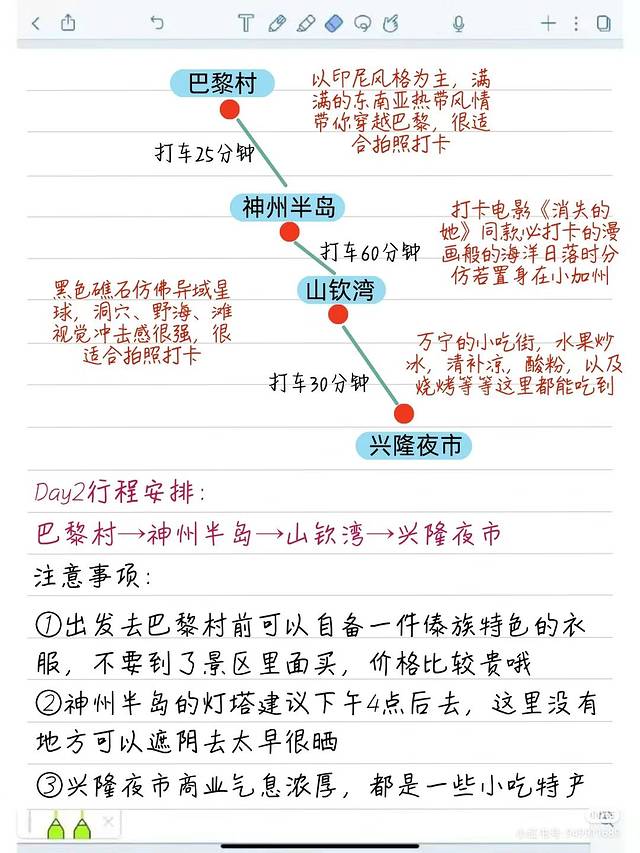 巴黎村
以印尼风格为主，满
满的东南亚热带风情
带你穿越巴黎，很适
合拍照打卡
打车25分钟
神州半岛
打卡电影《消失的
她》同款必打卡的漫
画般的海洋日落时分
仿若置身在小加州
打车60分钟
山钦湾
黑色礁石仿佛异域星
球，洞穴、野海、滩
视觉冲击感很强，很
适合拍照打卡
万宁的小吃街，水果炒
冰，清补凉，酸粉，以及
烧烤等等这里都能吃到
打车30分钟
兴隆夜市
Day2行程安排：
巴黎村→神州半岛→山钦湾→兴隆夜市
注意事项：
①出发去巴黎村前可以自备一件傣族特色的衣
服，不要到了景区里面买，价格比较贵哦
②神州半岛的灯塔建议下午4点后去，这里没有
地方可以遮阴去太早很晒
③兴隆夜市商业气息浓厚，都是一些小吃特产